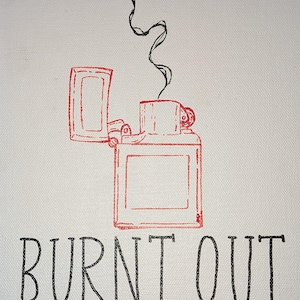 BURNT OUT